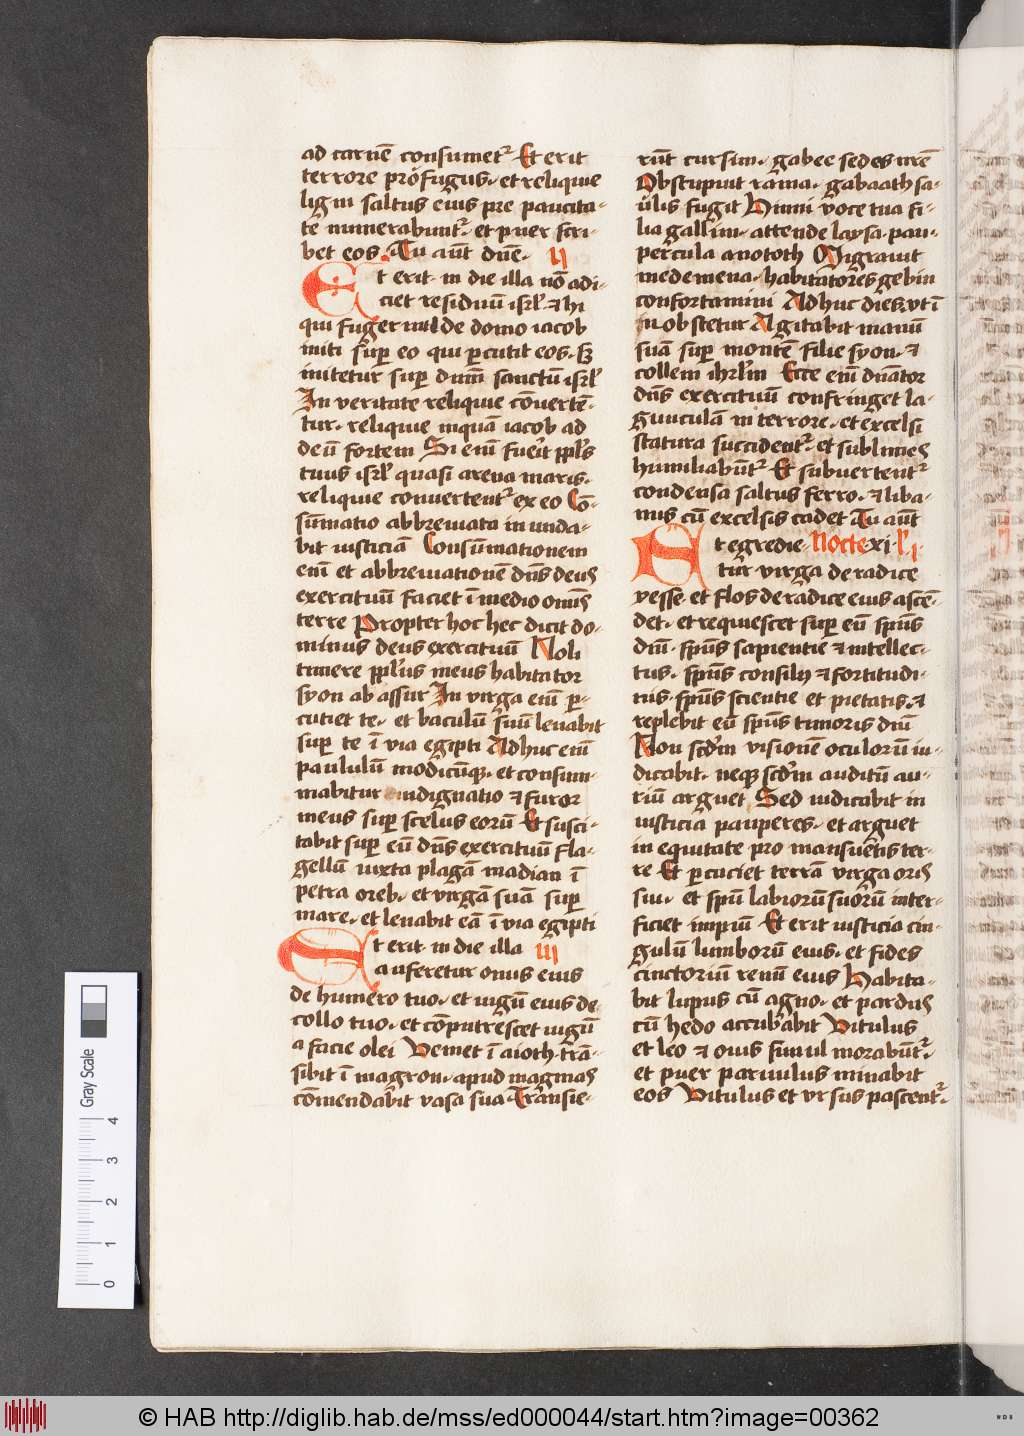 ad carnē consumet᷑ Et erit
terrore profugus· et reliquie
ligni saltus eius pre paucita-
te numerabunt᷑· et puer scri-
bet eos Tu aūt dn̄e· ii
Et erit in die illa nō adi-
ciet residuū isrl̄ ⁊ hi
qui fugerint de domo iacob
initi suꝑ eo qui ꝑcutit eos· sꝫ
initetur suꝑ dnm̄ sanctū isrl̄
In veritate reliquie cōvertē-
tur· reliquie inquā iacob ad
deū fortem Si enī fuerit ppl̄s
tuus isrl̄ quasi arena maris·
reliquie convertent᷑ ex eo Cō-
sūmatio abbreviata inunda-
bit iusticiā Consūmationem
enī et abbreviationē dn̄s deus
exercituū faciet ī medio omīs
terre Propter hoc hec dicit do-
minus deus exercituū Noli
timere ppl̄us meus habitator
syon ab assur In virga enī ꝑ-
cutiet te· et baculū suū levabit
suꝑ te ī via egipti Adhuc enī
paululū modicūqꝫ· et consum-
mabitur indignatio ⁊ furor
meus suꝑ scelus eorū Et susci-
tabit suꝑ eū dn̄s exercituū fla-
gellū iuxta plagā madian ī
petra oreb· et virgā suā suꝑ
mare· et levabit eā ī via egipti
Et erit in die illa iii
auferetur onus eius
de humero tuo· et iugū eius de
collo tuo· et cōputrescet iugū
a facie olei Veniet ī aioth· trā-
sibit ī magron· apud magmas
cōmendabit vasa sua Transie-
rūt cursim· gabee sedes nr̄e
Obstupuit rama· gabaath sa-
ulis fugit Hinni voce tua fi-
lia gallim· attende laysa· pau-
percula anototh Migravit
medemena· habitatores gebin
confortamini Adhuc dies· vt ī
nobstetur Agitabit manū
suā suꝑ montē filie syon· ⁊
collem ihrl̄m Ecce enī dn̄ator
dn̄s exercituū confringet la-
gunculā in terrore· et excelsi
statura succident᷑· et sublimes
humiliabūt᷑ Et subvertent᷑
condensa saltus ferro· ⁊ liba-
nus cū excelsis cadet Tu aūt
Et egredie- Nocte· xi· l̄ i
tur virga de radice
yesse· et flos de radice eius ascē-
det· et requiescet suꝑ eū spūs
dnī· spūs sapientie ⁊ intellec-
tus· spūs consilij ⁊ fortitudi-
nis· spūs scientie et pietatis· ⁊
replebit eū spūs timoris dnī
Non scd̄m visionē oculorū iu-
dicabit· neqꝫ scd̄m auditū au-
riū arguet Sed iudicabit in
iusticia pauperes· et arguet
in equitate pro mansuetis ter-
re Et ꝑcuciet terrā virga oris
sui· et spū labiorū suorū inter-
ficiet impiū Et erit iusticia cin-
gulū lumborū eius· et fides
cinctoriū renū eius Habita-
bit lupus cū agno· et pardus
cū hedo accubabit Vitulus
et leo ⁊ ovis simul morabūt᷑·
et puer parvulus minabit
eos Vitulus et ursus pascent᷑·
Gray Scale
0 1 2 3 4
© HAB http://diglib.hab.de/mss/ed000044/start.htm?image=00362